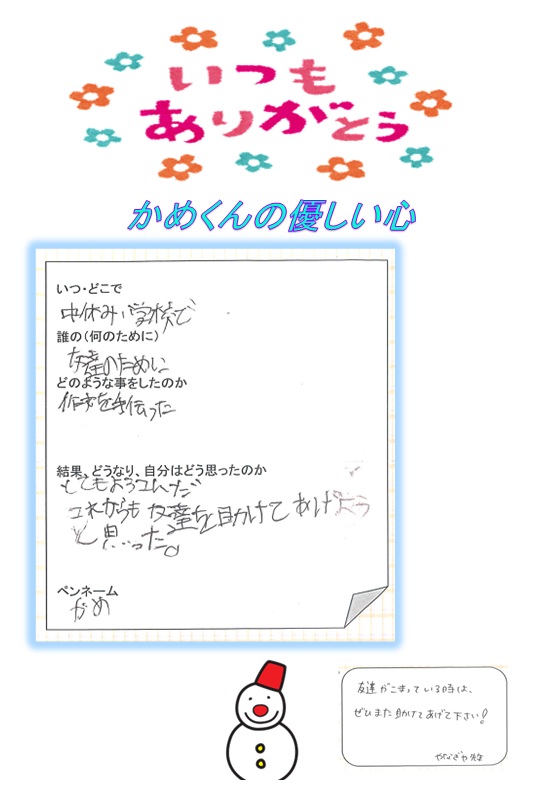 いつも
ありがとう
かめくんの優しい心
いつ・どこで
中休み 学校で
誰の(何のために)
友達のために
どのような事をしたのか
作文を手伝った
結果、どうなり、自分はどう思ったのか
とてもよろコんだ
コれからも友達を助けてあげよう
と思った。
ペンネーム
かめ
友達がこまっている時は、
ぜひまた助けてあげて下さい!
やなぎや先生